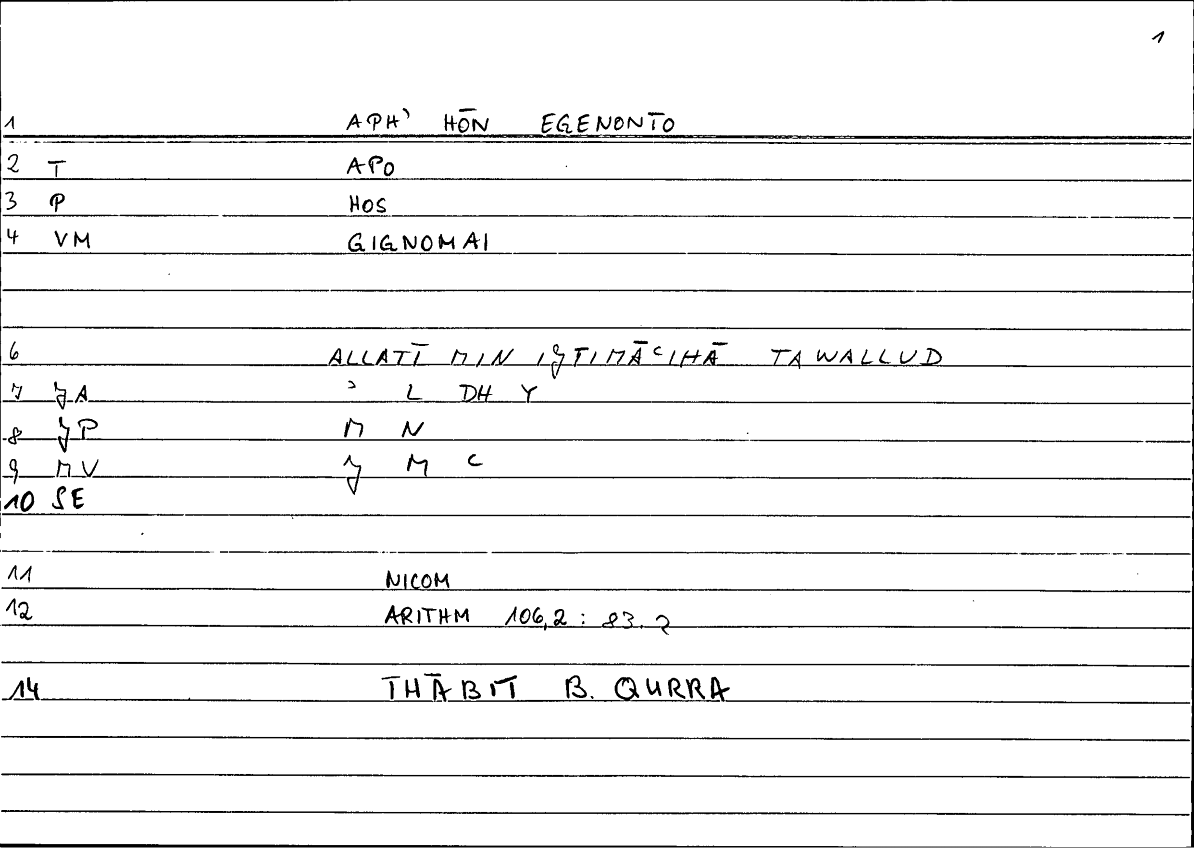 1
1 APH' HŌN EGENONTO
2 T APO
3 P HOS
4 VM GIGNOMAI
6 ALLATĪ MIN IǦTIMĀʿIHĀ TAWALLUD
7 JA ʾ L DH Y
8 JP M N
9 MV J M ʿ
10 SE
11 NICOM
12 ARITHM 106,2 : 83.2
14 THĀBIT B. QURRA